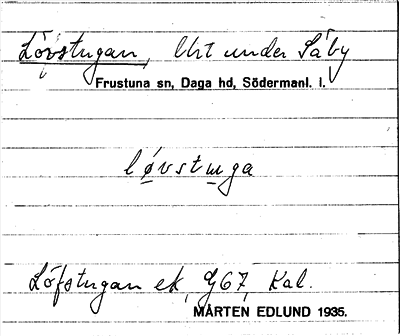 Lövstugan, Utt under Säby
Frustuna sn, Daga hd, Södermanl. l.
løvstuga
Löfstugan ek, G67, Kal.
MÅRTEN EDLUND 1935.